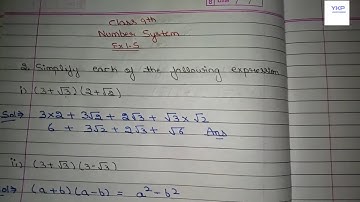 YKP
Class 9th
Number System
Ex 1.5
2. Simplify each of the following expression
i) (3+√3)(2+√2)
Solⁿ⇒ 3×2 + 3√2 + 2√3 + √3×√2
6 + 3√2 + 2√3 + √6 Ans
ii) (3+√3)(3-√3)
Solⁿ⇒ (a+b)(a-b) = a²-b²